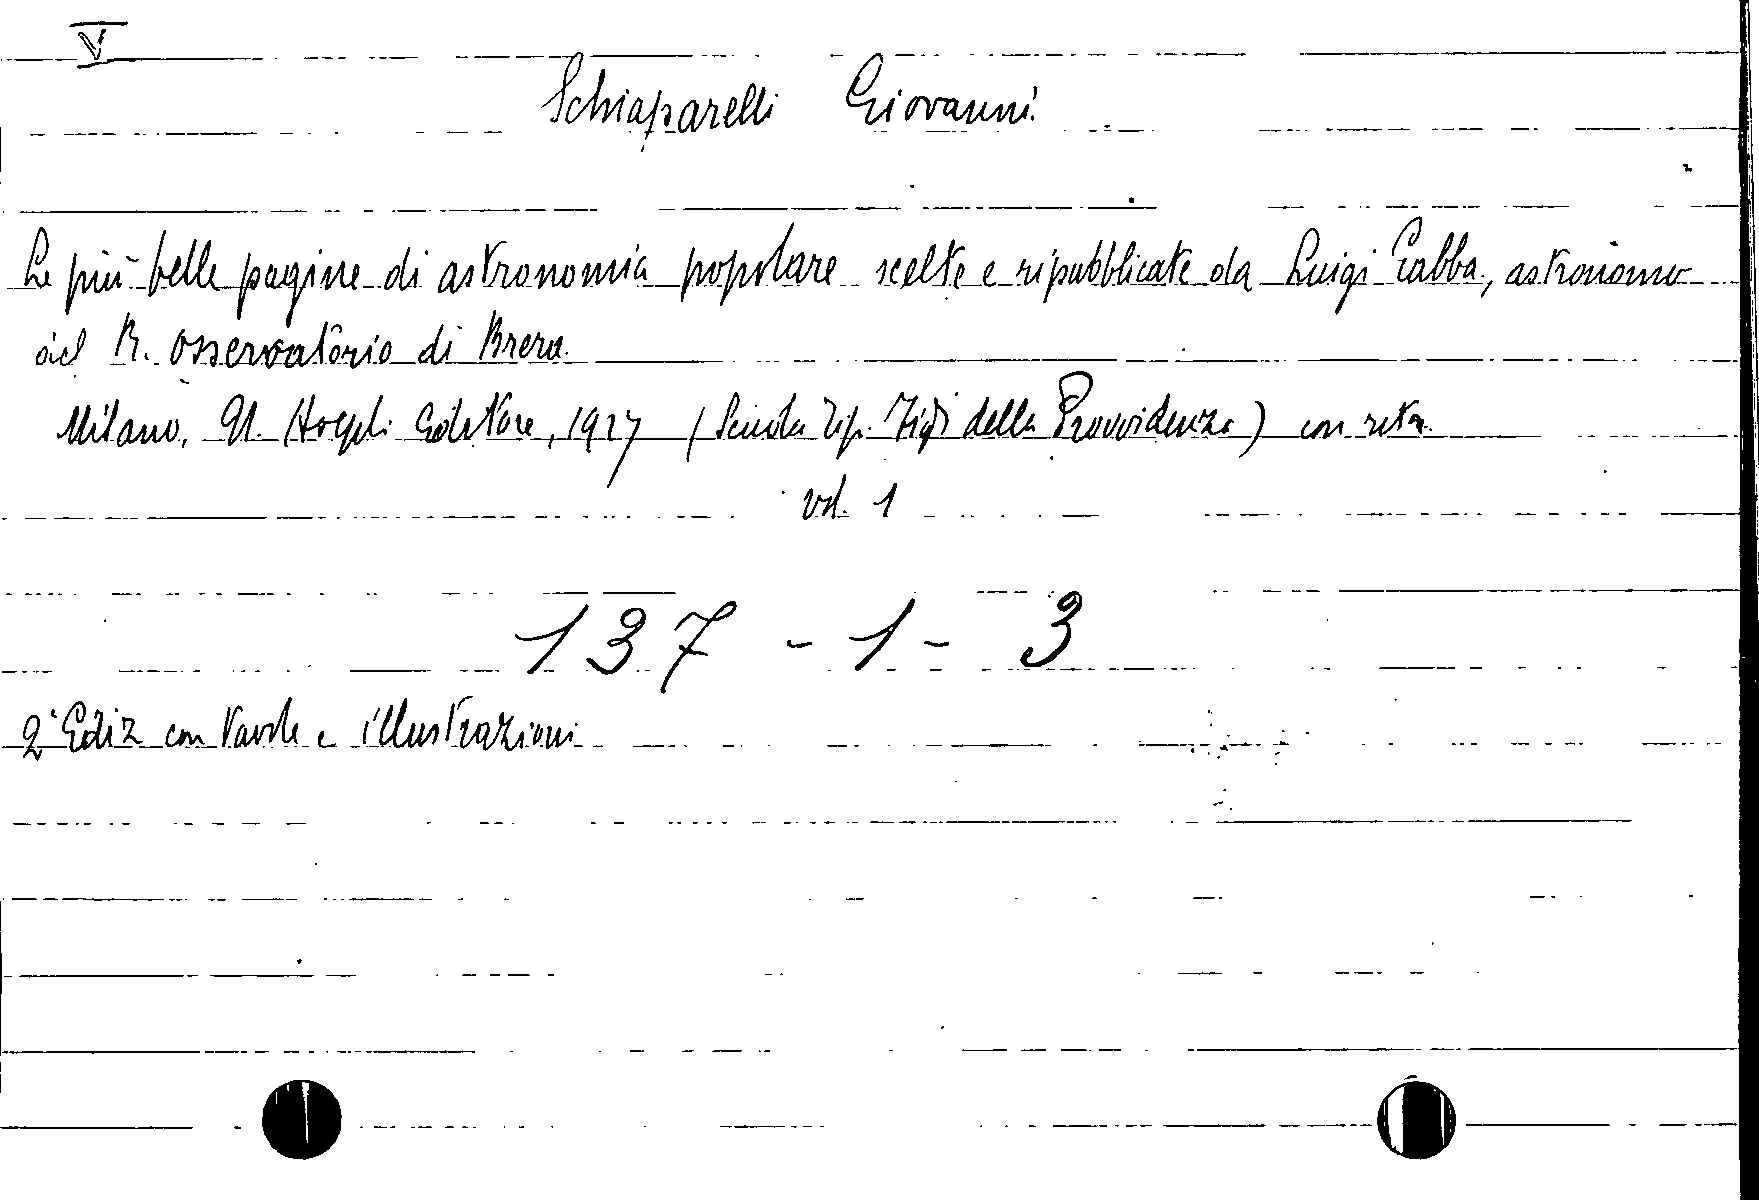 V
Schiaparelli Giovanni
Le più belle pagine di astronomia popolare scelte e ripubblicate da Luigi Gabba, astronomo
del R. Osservatorio di Brera.
Milano, U. Hoepli Editore, 1927 (Scuola Tip. Figli della Provvidenza) con
vol. 1
137 - 1 - 3
2ª Ediz con tavole e illustrazioni